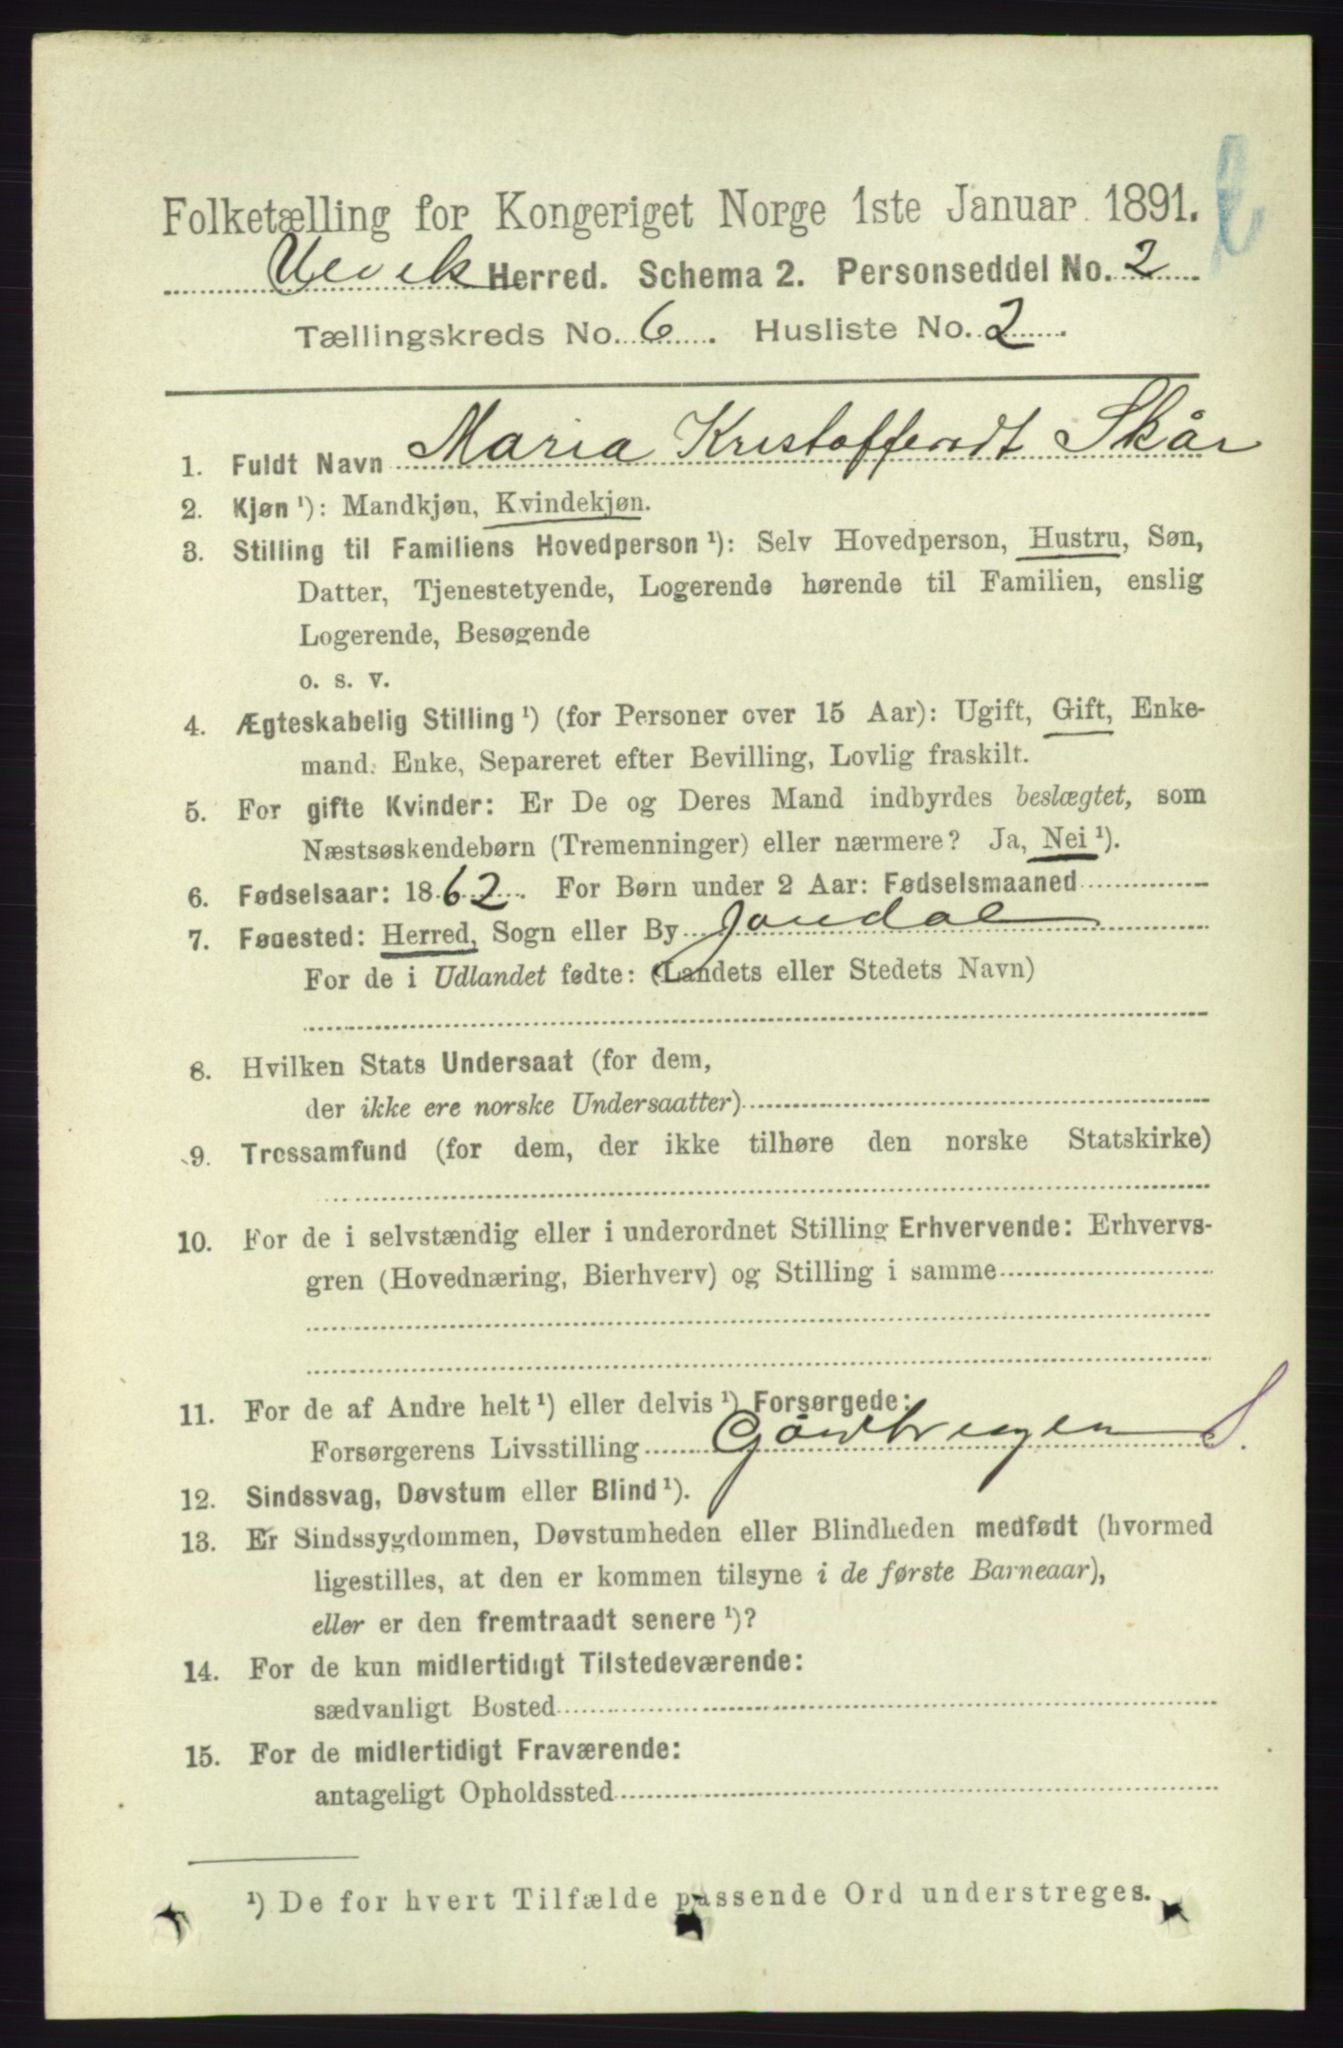 Folketælling for Kongeriget Norge 1ste Januar 1891.
Ulvik Herred. Schema 2. Personseddel No. 2
Tællingskreds No. 6. Husliste No. 2.
1. Fuldt Navn Maria Kristoffersdt Skår
2. Kjøn ¹): Mandkjøn, Kvindekjøn.
3. Stilling til Familiens Hovedperson ¹): Selv Hovedperson, Hustru, Søn,
Datter, Tjenestetyende, Logerende hørende til Familien, enslig
Logerende, Besøgende
o. s. v.
4. Ægteskabelig Stilling ¹) (for Personer over 15 Aar): Ugift, Gift, Enke-
mand. Enke, Separeret efter Bevilling, Lovlig fraskilt.
5. For gifte Kvinder: Er De og Deres Mand indbyrdes beslægtet, som
Næstsøskendebørn (Tremenninger) eller nærmere? Ja, Nei ¹).
6. Fødselsaar: 1862. For Børn under 2 Aar: Fødselsmaaned
7. Fødested: Herred, Sogn eller By Jondal
For de i Udlandet fødte: (Landets eller Stedets Navn)
8. Hvilken Stats Undersaat (for dem,
der ikke ere norske Undersaatter)
9. Trossamfund (for dem, der ikke tilhøre den norske Statskirke)
10. For de i selvstændig eller i underordnet Stilling Erhvervende: Erhvervs-
gren (Hovednæring, Bierhverv) og Stilling i samme
11. For de af Andre helt ¹) eller delvis ¹) Forsørgede:
Forsørgerens Livsstilling S.
12. Sindssvag, Døvstum eller Blind ¹).
13. Er Sindssygdommen, Døvstumheden eller Blindheden medfødt (hvormed
ligestilles, at den er kommen tilsyne i de første Barneaar),
eller er den fremtraadt senere ¹)?
14. For de kun midlertidigt Tilstedeværende:
sædvanligt Bosted
15. For de midlertidigt Fraværende:
antageligt Opholdssted
¹) De for hvert Tilfælde passende Ord understreges.